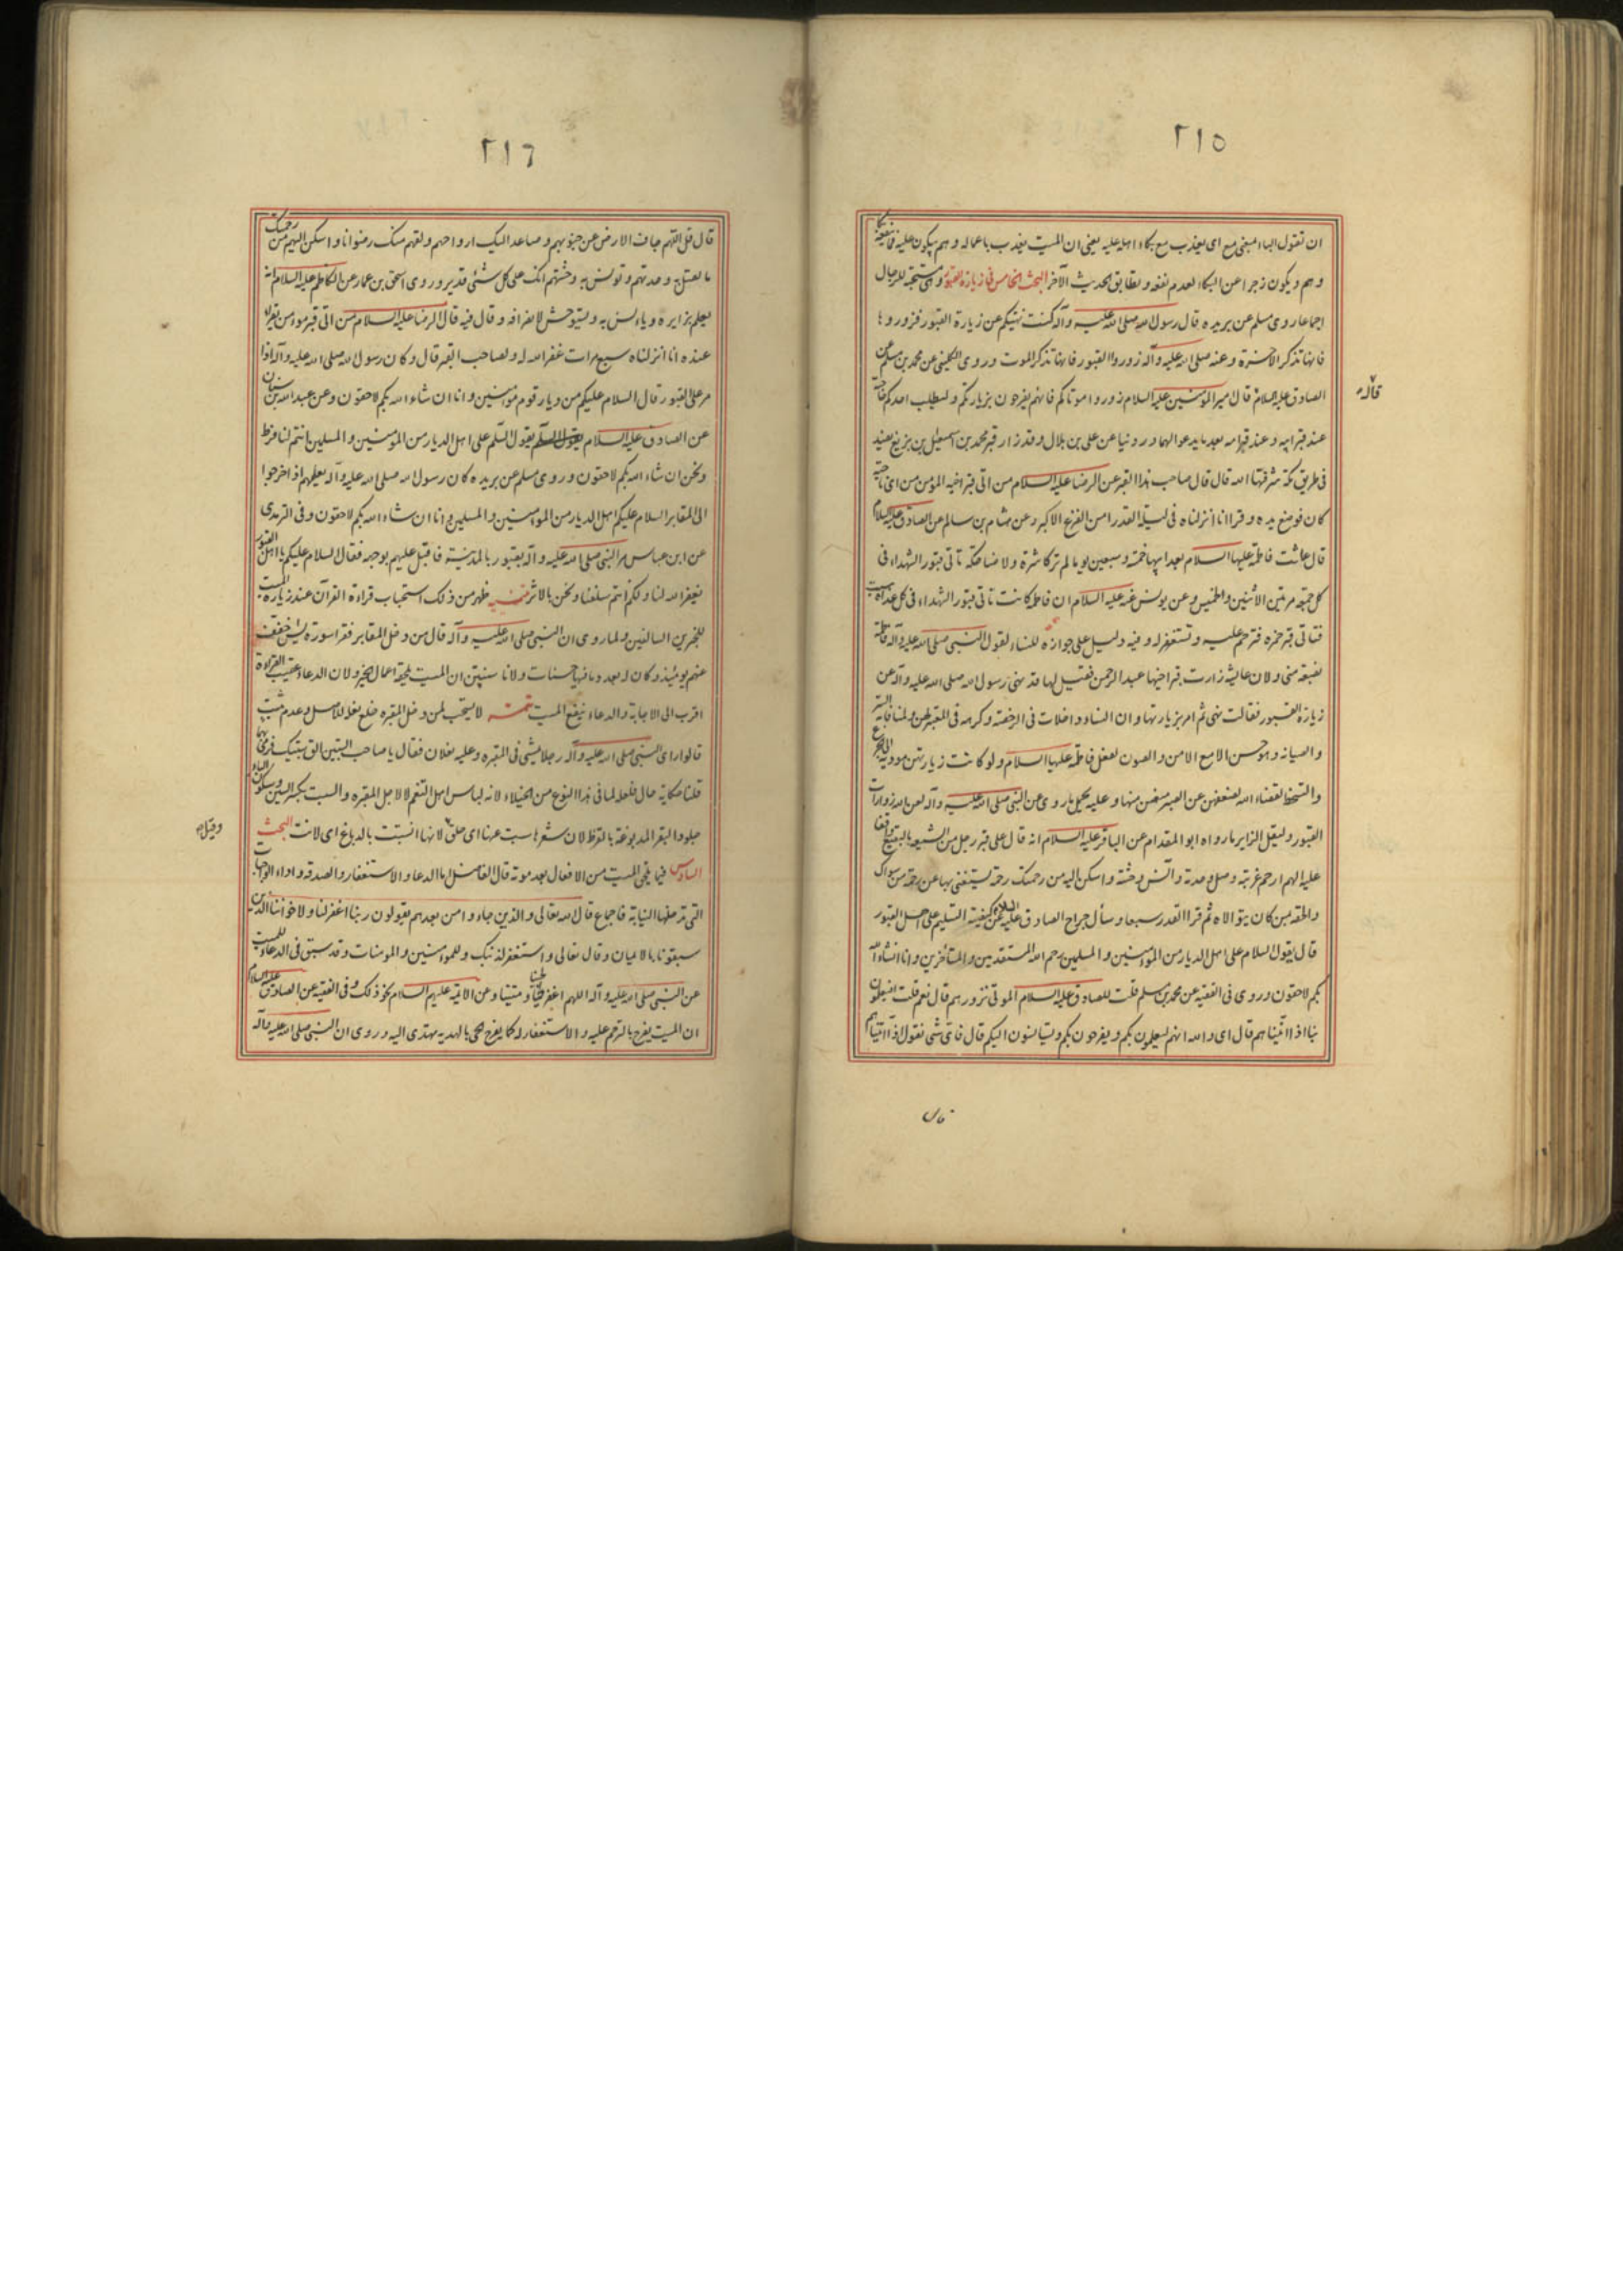 ٢١٥
ان تقول الباء بمعنى مع اى يعذب مع بكاء اهله عليه يعنى ان الميت يعذب باعماله و هم يبكون عليه فما ينفعه بكاء
و هم و يكون زجرا عن البكاء لعدم نفعه و يطابق الحديث الآخر البحث الخامس فى زيارة القبور و هى مستحبة للرجال
اجماعا روى مسلم عن بريده قال رسول الله صلى الله عليه وآله كنت نهيتكم عن زيارة القبور فزوروها
فانها تذكر الآخرة و عنه صلى الله عليه وآله زوروا القبور فانها تذكر الموت و روى الكلينى عن محمد بن مسلم عن
الصادق عليه السلام قال قال امير المؤمنين عليه السلام زوروا موتاكم فانهم يفرحون بزيارتكم و ليطلب احدكم حاجته
عند قبر ابيه و عند قبر امه بعد ما يدعو لهما و روينا عن على بن بلال و قد زار قبر محمد بن اسمعيل بن بزيع بفيد
فى طريق مكة شرفها الله قال قال صاحب هذا القبر عن الرضا عليه السلام من اتى قبر اخيه المؤمن من اى ناحية
كان فوضع يده و قرا انا انزلناه فى ليلة القدر امن الفزع الاكبر و عن هشام بن سالم عن الصادق عليه السلام
قال عاشت فاطمة عليها السلام بعد ابيها خمسة و سبعين يوما لم تر كاشرة ولا ضاحكة تاتى قبور الشهداء فى
كل جمعة مرتين الاثنين و الخميس و عن يونس عنه عليه السلام ان فاطمة كانت تاتى قبور الشهداء فى كل غداة سبت
فتاتى قبر حمزه فترحم عليه و تستغفر له و فيه دليل على جوازه للنساء لقول النبى صلى الله عليه وآله فاطمة
بضعة منى و لان عايشه زارت قبر اخيها عبد الرحمن فقيل لها قد نهى رسول الله صلى الله عليه وآله عن
زيارة القبور فقالت نهى ثم امر بزيارتها و ان النساء داخلات فى الرخصة و كرهه فى المعتبر لهن لمنافاة الستر
و الصيانة و هو حسن الا مع الامن و الصون لفعل فاطمة عليها السلام و لو كانت زيارتهن مودية الى الجزع
و التسخط لقضاء الله لضعفهن عن الصبر منعن منها و عليه يحمل ما روى عن النبى صلى الله عليه وآله لعن الله زوارات
القبور و ليقل الزاير ما رواه ابو المقدام عن الباقر عليه السلام انه قال على قبر رجل من الشيعه بالبقيع واقفا
عليه اللهم ارحم غربته و صل وحدته و آنس وحشته و اسكن اليه من رحمتك رحمة يستغنى بها عن رحمة من سواك
و الحقه بمن كان يتولاه ثم قرا القدر سبعا و سأل جراح الصادق عليه السلام عن كيفية التسليم على اهل القبور
قال يقول السلام على اهل الديار من المؤمنين و المسلمين رحم الله المستقدمين و المتأخرين و انا انشاء الله
بكم لاحقون و روى فى الفقيه عن محمد بن مسلم قلت للصادق عليه السلام الموتى نزورهم قال نعم قلت افيعلمون
بنا اذا اتيناهم قال اى و الله انهم ليعلمون بكم و يفرحون بكم و يستأنسون اليكم قال قلت فاى شى نقول اذا اتيناهم
قال
قال
٢١٦
قال قل اللهم جاف الارض عن جنوبهم و صاعد اليك ارواحهم و لقهم منك رضوانا و اسكن اليهم من رحمتك
ما تصل به وحدتهم و تونس به وحشتهم انك على كل شئ قدير و روى اسحق بن عمار عن الكاظم عليه السلام انه
يعلم بزايره و يانس به و يستوحش لانصرافه و قال فيه قال الرضا عليه السلام من اتى قبر مومن يقرا
عنده انا انزلناه سبع مرات غفر الله له و لصاحب القبر قال و كان رسول الله صلى الله عليه وآله اذا
مر على القبور قال السلام عليكم من ديار قوم مؤمنين و انا ان شاء الله بكم لاحقون و عن عبد الله بن سنان
عن الصادق عليه السلام يقول السلم على اهل الديار من المؤمنين و المسلمين انتم لنا فرط
و نحن ان شاء الله بكم لاحقون و روى مسلم عن بريده كان رسول الله صلى الله عليه وآله يعلمهم اذا خرجوا
الى المقابر السلام عليكم اهل الديار من المؤمنين و المسلمين و انا ان شاء الله بكم لاحقون و فى الترمذى
عن ابن عباس مر النبى صلى الله عليه وآله بقبور بالمدينة فاقبل عليهم بوجهه فقال السلام عليكم يا اهل القبور
يغفر الله لنا و لكم انتم سلفنا و نحن بالاثر تنبيه ظهر من ذلك استحباب قراءة القرآن عند زيارة الميت
للخبرين السالفين و لما روى ان النبى صلى الله عليه وآله قال من دخل المقابر فقرا سورة يس خفف
عنهم يومئذ و كان له بعدد ما فيها حسنات و لانا سنبين ان الميت يلحقه اعمال الخير و لان الدعاء عقيب القراءة
اقرب الى الاجابة و الدعاء ينفع الميت تتمه لا يستحب لمن دخل المقبره خلع نعله للاصل و عدم مثبت
قالوا راى النبى صلى الله عليه وآله رجلا يمشى فى المقبره و عليه نعلان فقال يا صاحب السبتين الق سبتيك فرمى بهما
قلنا حكاية حال فلعله لما فى هذا النوع من الخيلاء لانه لباس اهل التنعم لا لاجل المقبره و السبت بكسر السين و سكون الباء
جلود البقر المدبوغة بالقرظ لان شعرها سبت عنها اى حلق لانها انسبتت بالدباغ اى لانت البحث
السادس فيما يلحق الميت من الافعال بعد موته قال الفاضل اما الدعا و الاستغفار و الصدقه و اداء الواجبات
التى تدخلها النيابة فاجماع قال الله تعالى و الذين جاءوا من بعدهم يقولون ربنا اغفر لنا و لاخواننا الذين
سبقونا بالايمان و قال تعالى و استغفر لذنبك و للمؤمنين و المومنات و قد سبق فى الدعاء للميت
عن النبى صلى الله عليه وآله اللهم اغفر لحينا و ميتنا و عن الائمة عليهم السلام نحو ذلك و فى الفقيه عن الصادق عليه السلام
ان الميت يفرح بالترحم عليه و الاستغفار له كما يفرح الحى بالهديه تهدى اليه و روى ان النبى صلى الله عليه وآله
و قيل